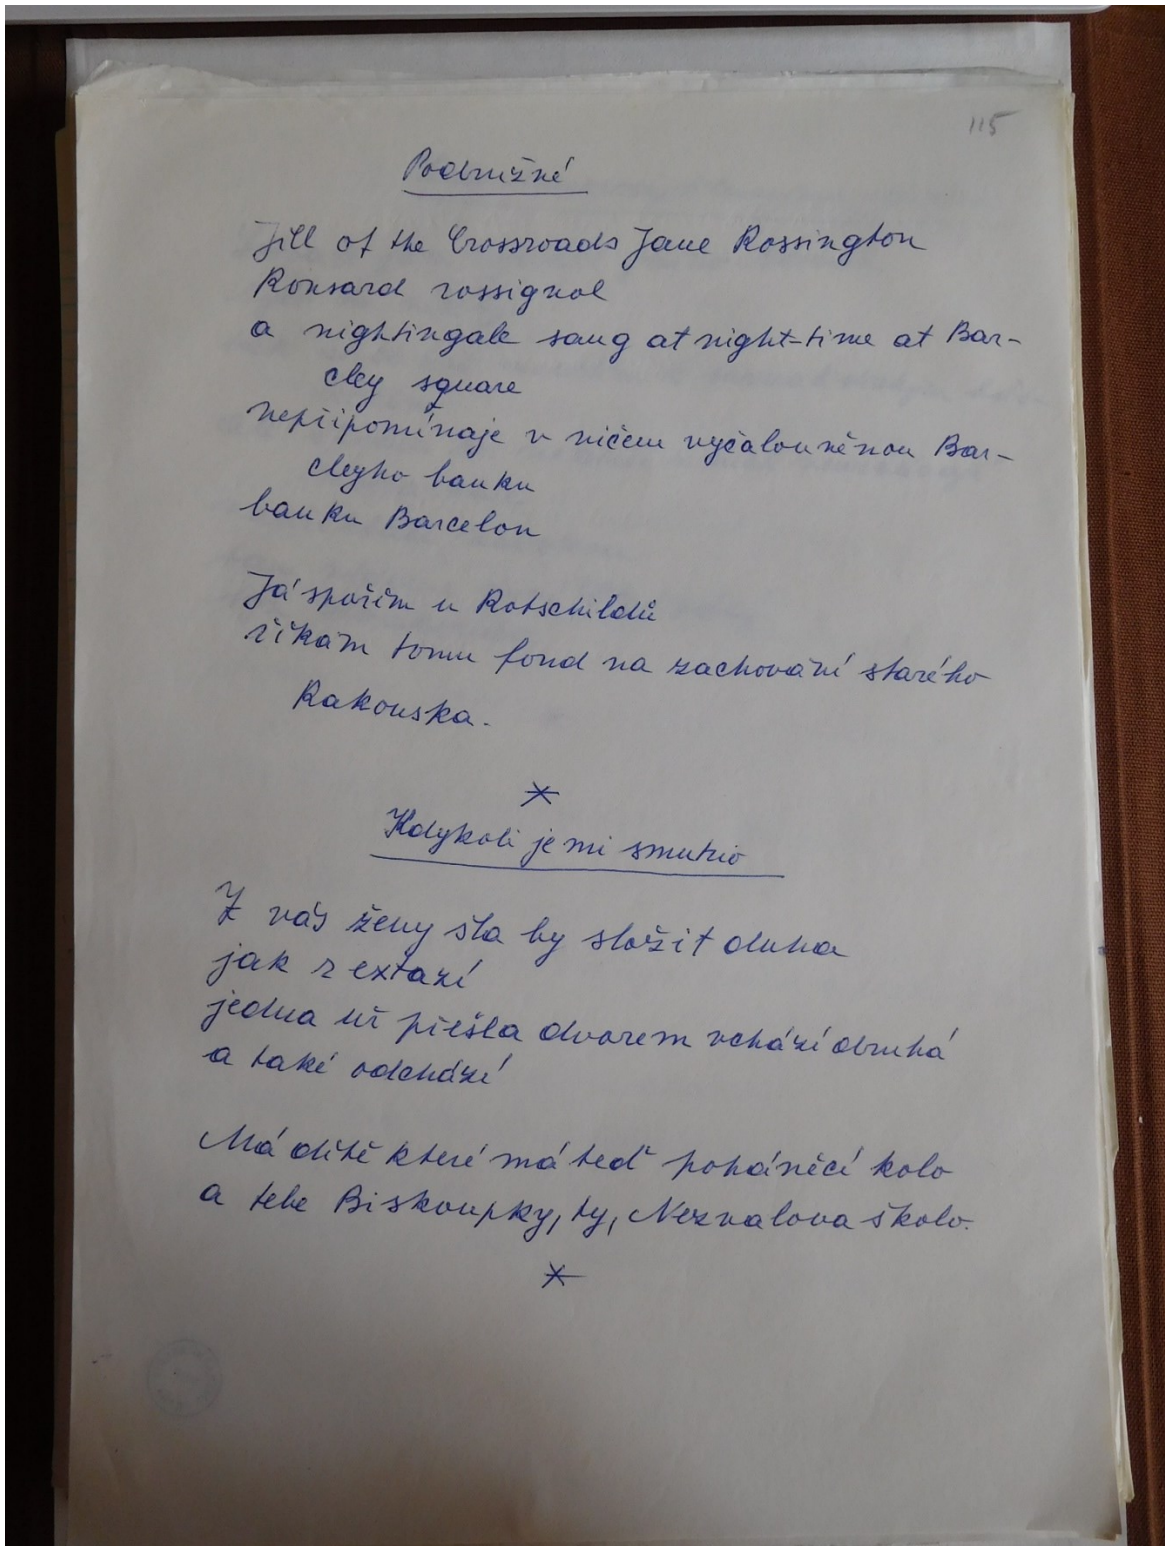 115
Podružné
Jill of the Crossroads Jane Rossington
Ronsard rossignol
a nightingale sang at night-time at Bar-
cley square
nepřipomínaje v ničem vyčalouněnou Bar-
cleyho banku
banku Barcelon
Já spořím u Rotschildů
říkám tomu fond na zachování starého
Rakouska.
*
Kdykoli je mi smutno
Z vás ženy šla by složit duha
jak z extazí
jedna už přešla dvorem vchází druhá
a také odchází
Má dítě které má teď poháněcí kolo
a tebe Biskoupky, ty, Nezvalova školo.
*